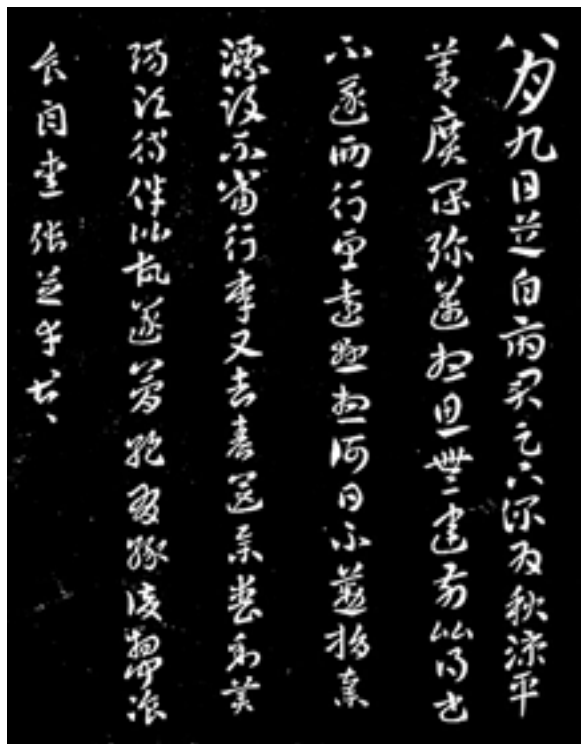 八月九日芝白府君足下深為秋涼平
善廣閑彌邁想思無違前比得書
不遂西行望遠懸想何日不懃捐棄
漂沒不當行李又去春送舉喪到美
陽須待伴比故遂簡絕有緣復相聞飡
食自愛張芝幸甚〻